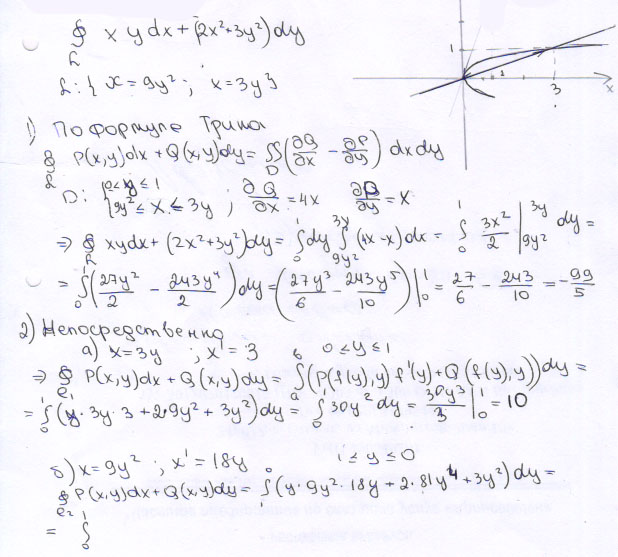 ∮ xydx + (2x²+3y²)dy
L
L: { x = 9y² ; x = 3y }
1
2
3
x
1) По формуле Грина
∮ P(x,y)dx + Q(x,y)dy = ∬ (∂Q/∂x − ∂P/∂y) dxdy
L D
D: {0 ≤ y ≤ 1
{9y² ≤ x ≤ 3y ; ∂Q/∂x = 4x ∂P/∂y = x
⇒ ∮ xydx + (2x²+3y²)dy = ∫₀¹ dy ∫_{9y²}^{3y} (4x−x)dx = ∫₀¹ 3x²/2 |_{9y²}^{3y} dy =
= ∫₀¹ (27y²/2 − 243y⁴/2) dy = (27y³/6 − 243y⁵/10) |₀¹ = 27/6 − 243/10 = −99/5
2) Непосредственно
а) x = 3y ; x' = 3 0 ≤ y ≤ 1
⇒ ∮ P(x,y)dx + Q(x,y)dy = ∫ₐᵇ (P(f(y),y) f'(y) + Q(f(y),y))dy =
= ∫₀¹ (y·3y·3 + 2·9y² + 3y²)dy = ∫₀¹ 30y² dy = 30y³/3 |₀¹ = 10
б) x = 9y² ; x' = 18y 1 ≤ y ≤ 0
∮ P(x,y)dx + Q(x,y)dy = ∫₁⁰ (y·9y²·18y + 2·81y⁴ + 3y²)dy =
= ∫